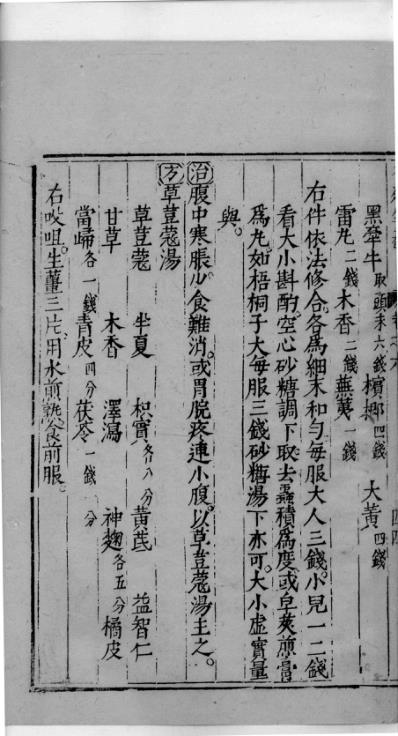 黑牽牛取頭末六錢檳榔四錢　大黃四錢
雷丸二錢木香二錢蕪荑一錢
右件依法修合各爲細末和勻每服大人三錢小兒一二錢
看大小斟酌空心砂糖調下取去蟲積爲度或皂莢煎膏
爲丸如梧桐子大每服三錢砂糖湯下亦可大小虛實量
與
治腹中寒脹少食難消或胃脘疼連小腹以草荳蔻湯主之
方草荳蔻湯
草荳蔻　半夏　枳實各八分黃芪　益智仁
甘草　木香　澤瀉　神麯各五分橘皮
當歸各一錢青皮四分茯苓一錢　分
右㕮咀生薑三片用水煎熟食前服